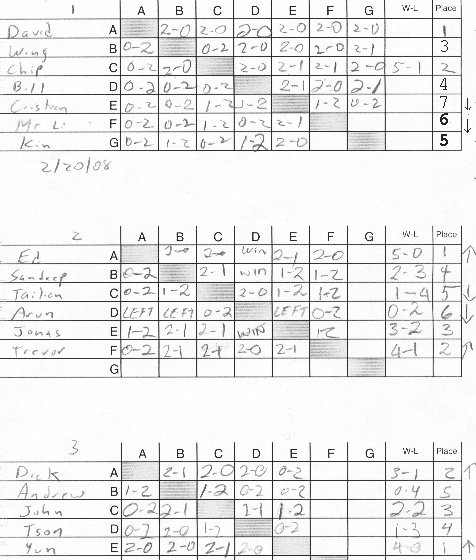 1 A B C D E F G W-L Place
David A 2-0 2-0 2-0 2-0 2-0 2-0 1
Wing B 0-2 0-2 2-0 2-0 2-0 2-1 3
Chip C 0-2 2-0 2-0 2-1 2-1 2-0 5-1 2
Bill D 0-2 0-2 0-2 2-1 2-0 2-1 4
E 0-2 0-2 1-2 1-2 1-2 0-2 7 ↓
Mr Li F 0-2 0-2 1-2 0-2 2-1 6 ↓
Kin G 0-2 1-2 0-2 1-2 2-0 5
2/20/08
2 A B C D E F G W-L Place
Ed A 2-0 2-0 Win 2-1 2-0 5-0 1 ↑
Sandeep B 0-2 2-1 WIN 1-2 1-2 2-3 4
C 0-2 1-2 2-0 1-2 1-2 1-4 5 ↓
Arun D LEFT LEFT 0-2 LEFT 0-2 0-2 6 ↓
Jonas E 1-2 2-1 2-1 WIN 1-2 3-2 3
Trevor F 0-2 2-1 2-1 2-0 2-1 4-1 2 ↑
G
3 A B C D E F G W-L Place
Dick A 2-1 2-0 2-0 0-2 3-1 2 ↑
Andrew B 1-2 1-2 0-2 0-2 0-4 5
John C 0-2 2-1 1-2 2-2 3
Tson D 0-2 2-0 0-2 1-3 4
Yun E 2-0 2-0 2-1 2-0 4-0 1 ↑